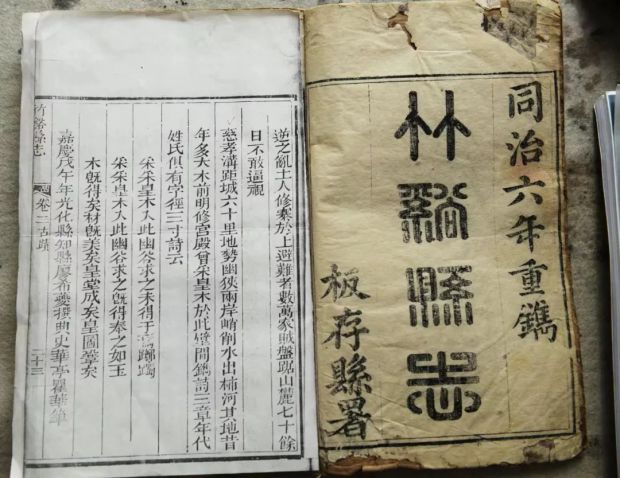 同治六年重鐫
竹谿縣志
板存縣署
逆之亂土人修寨於上避難者數萬家賊盤踞山麓七十餘
日不敢逼視
慈孝溝距城六十里地勢幽狹兩岸峭削水出柿河其地昔
年多大木前明修宮殿曾采皇木於此壁間鐫詩三章年代
姓氏俱有字徑三寸詩云
采采皇木入此幽谷求之未得于焉躑躅
采采皇木入此幽谷求之旣得奉之如玉
木旣得矣材旣美矣皇堂成矣皇圖鞏矣
嘉慶戊午年光化縣知縣廖希夔撰典史華亭瞿華筆
竹谿縣志
卷二古蹟
二十三